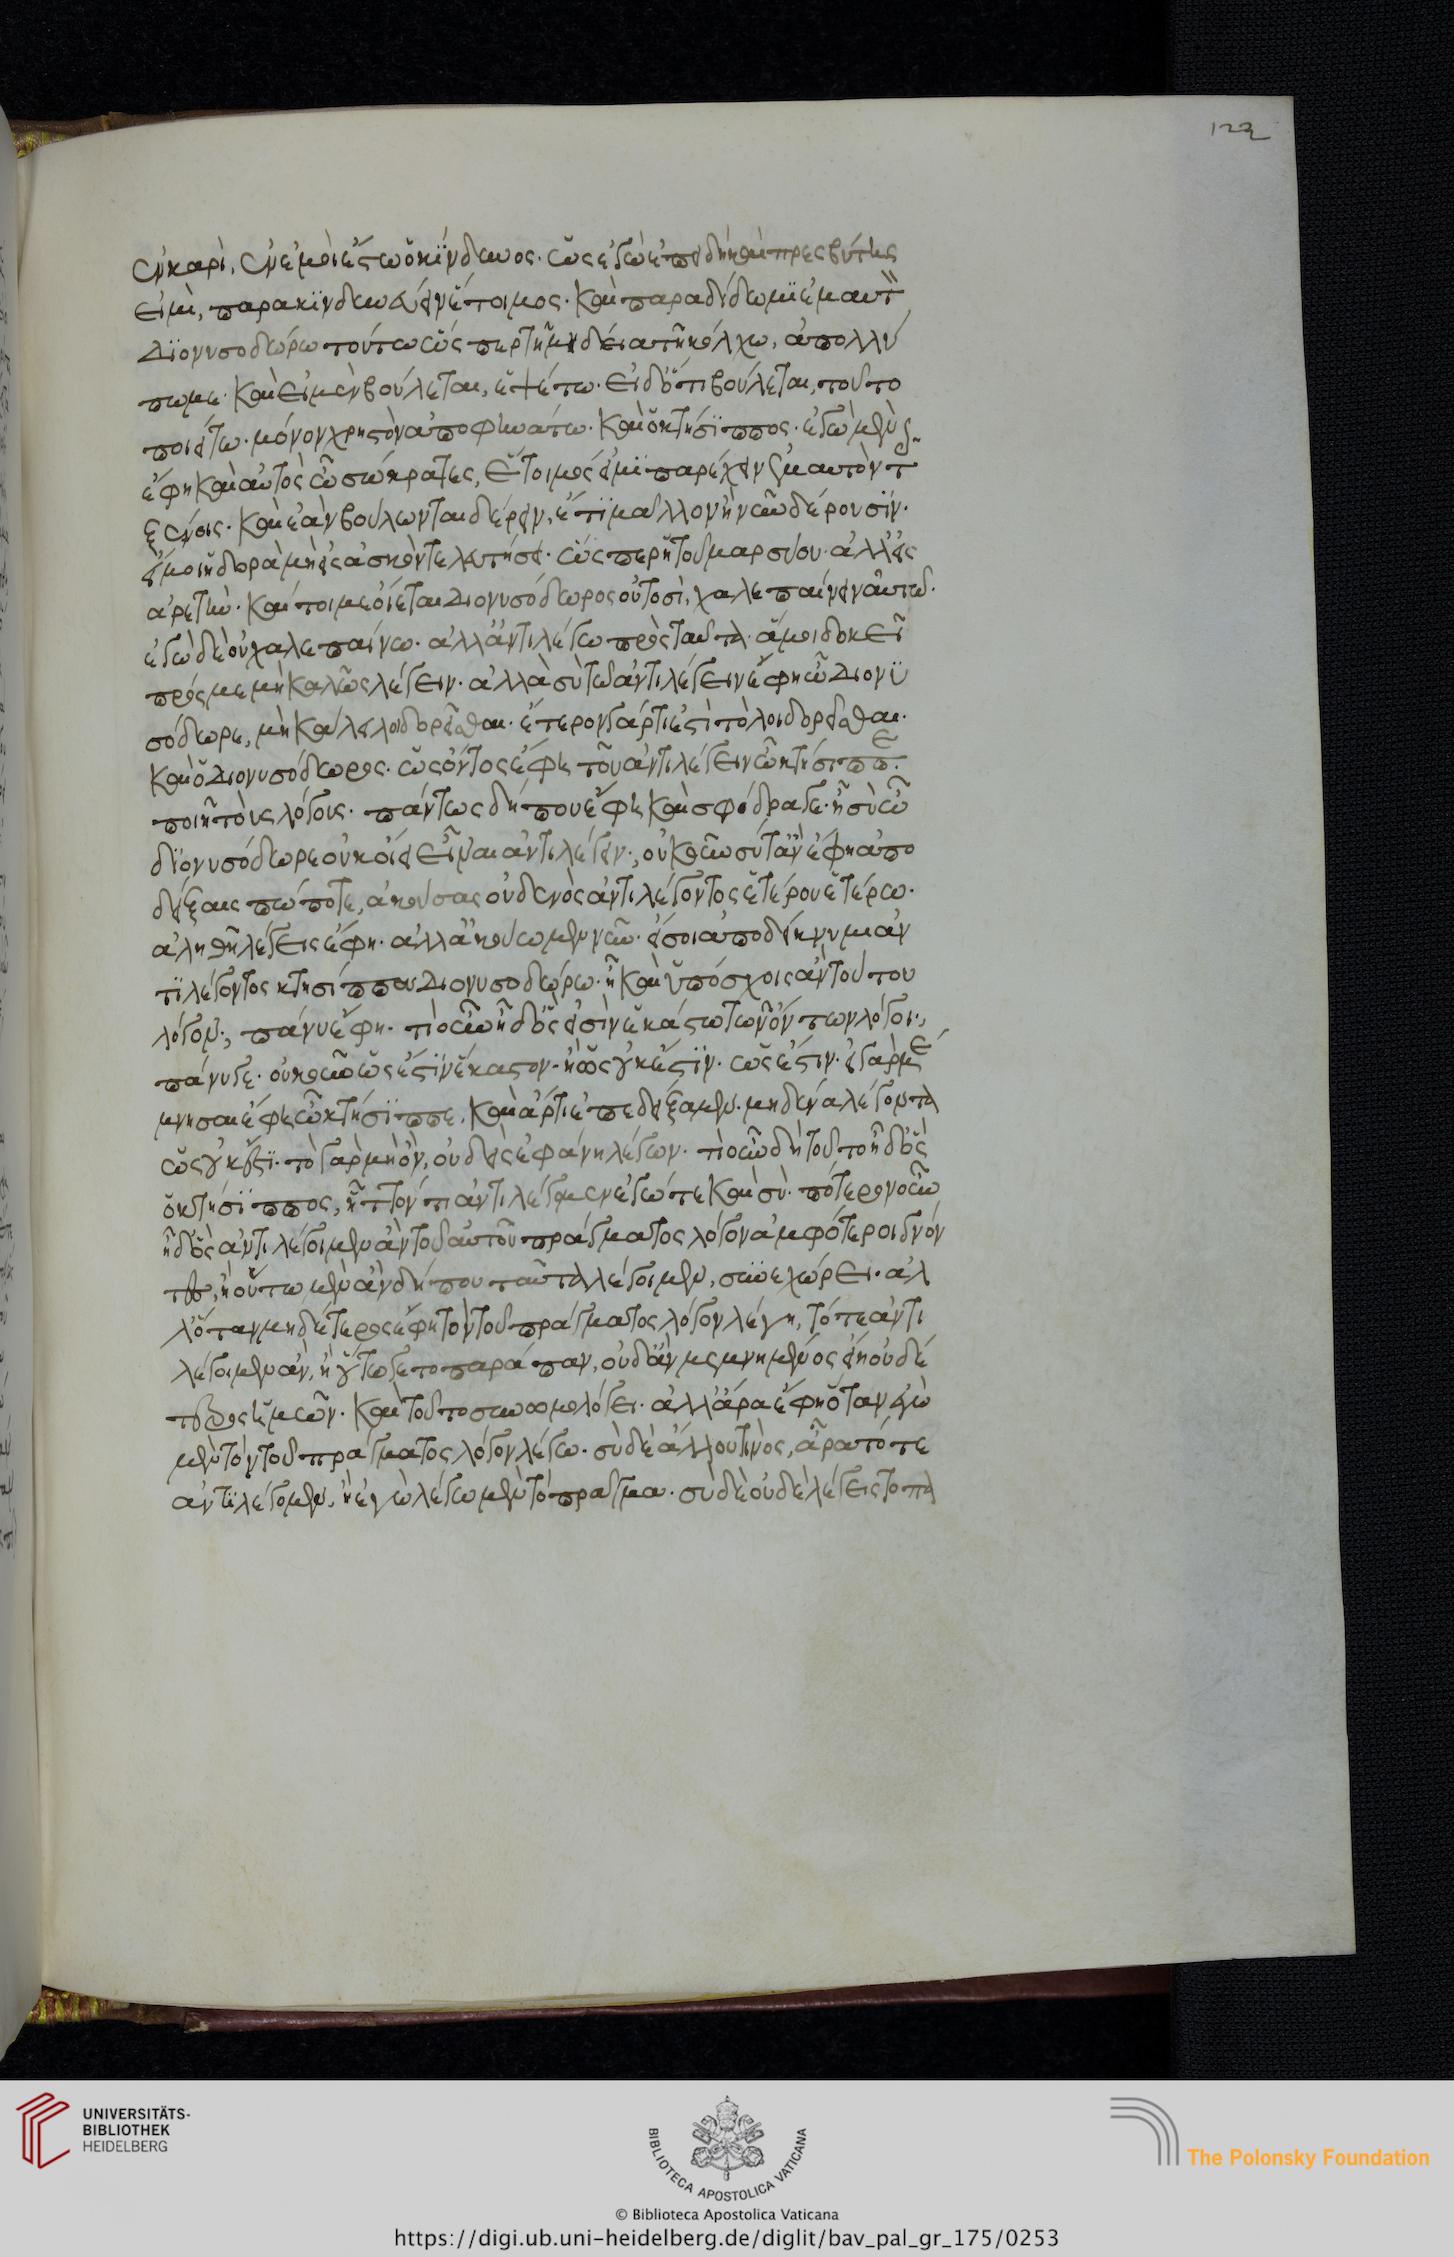 ἐν καρὶ, ἐν ἐμοὶ ἔστω ὁ κίνδυνος. ὡς ἐγὼ ἐπειδὴ καὶ πρεσβύτης
εἰμὶ, παρακινδυνεύειν ἕτοιμος. καὶ παραδίδωμι ἐμαυτὸν
Διονυσοδώρω τούτω ὥσπερ τῆ μηδεία τῆ κόλχω, ἀπολλύ
τω με. καὶ εἰ μὲν βούλεται, ἑψέτω. εἰ δ' ὅτι βούλεται, τοῦτο
ποιείτω. μόνον χρηστὸν ἀποφηνάτω. καὶ ὁ κτήσιππος. ἐγὼ μὲν
ἔφη καὶ αὐτὸς ὦ σώκρατες, ἕτοιμός εἰμι παρέχειν ἐμαυτὸν τοῖς
ξένοις. καὶ ἐὰν βούλωνται δέρειν, ἔτι μᾶλλον ἢ νῦν δέρουσιν.
εἴ μοι ἡ δορὰ μὴ εἰς ἀσκὸν τελευτήσει. ὥσπερ ἡ τοῦ μαρσύου. ἀλλ' εἰς
ἀρετήν. καί τοι με οἴεται Διονυσόδωρος οὑτοσὶ, χαλεπαίνειν αὐτῶ.
ἐγὼ δὲ οὐ χαλεπαίνω. ἀλλ' ἀντιλέγω πρὸς ταῦτα. ἅ μοι δοκεῖ
πρός με μὴ καλῶς λέγειν. ἀλλὰ σὺ τὸ ἀντιλέγειν ἔφη ὦ Διονυ
σόδωρε, μὴ κάλει λοιδορεῖσθαι. ἕτερον γάρ τι ἐστὶ τὸ λοιδορεῖσθαι.
καὶ ὁ Διονυσόδωρος. ὡς ὄντος ἔφη τοῦ ἀντιλέγειν ὦ κτήσιππε.
ποιῆ τοὺς λόγους. πάντως δήπου ἔφη καὶ σφόδρα γε. ἢ σὺ ὦ
διονυσόδωρε οὐκ οἴει εἶναι ἀντιλέγειν; οὔκουν σύ γ' ἂν ἔφη ἀπο
δείξαις πώποτε, ἀκούσας οὐδενὸς ἀντιλέγοντος ἑτέρου ἑτέρω.
ἀληθῆ λέγεις ἔφη. ἀλλὰ ἀκούωμεν νῦν. εἴ σοι ἀποδείκνυμι ἀν
τιλέγοντος κτησίππου Διονυσοδώρω. ἦ καὶ ὑπόσχοις ἂν τούτου
λόγον; πάνυ ἔφη. τί οὖν ἦ δ' ὅς εἰσὶν ἑκάστω τῶν ὄντων λόγοι;
πάνυ γε. οὐκοῦν ὡς ἔστιν ἕκαστον. ἢ ὡς οὐκ ἔστιν. ὡς ἔστιν. εἰ γὰρ μέ
μνησαι ἔφη ὦ κτήσιππε, καὶ ἄρτι ἐπεδείξαμεν. μηδένα λέγοντα
ὡς οὐκ ἔστι. τὸ γὰρ μὴ ὂν, οὐδεὶς ἐφάνη λέγων. τί οὖν δὴ τοῦτο ἦ δ' ὃς
ὁ κτήσιππος, ἧττόν τι ἀντιλέγομεν ἐγώ τε καὶ σύ. πότερον οὖν
ἦ δ' ὃς ἀντιλέγοιμεν ἂν τοῦ αὐτοῦ πράγματος λόγον ἀμφότεροι λέγον
τες, ἢ οὕτω μὲν ἂν δήπου ταῦτα λέγοιμεν, συνεχώρει. ἀλ
λ' ὅταν μηδέτερος ἔφη τὸν τοῦ πράγματος λόγον λέγη, τότε ἀντι
λέγοιμεν ἂν, ἢ οὕτω γε τοπαράπαν, οὐδ' ἂν μεμνημένος εἴη οὐδέ
τερος ἡμῶν. καὶ τοῦτο συνωμολόγει. ἀλλ' ἄρα ἔφη ὅταν ἐγὼ
μὲν τὸν τοῦ πράγματος λόγον λέγω. σὺ δὲ ἄλλου τινὸς, ἆρα τότε
ἀντιλέγομεν, ἢ ἐγὼ λέγω μὲν τὸ πρᾶγμα. σὺ δὲ οὐδὲ λέγεις τοπα
122
UNIVERSITÄTS-
BIBLIOTHEK
HEIDELBERG
BIBLIOTECA APOSTOLICA VATICANA
The Polonsky Foundation
© Biblioteca Apostolica Vaticana
https://digi.ub.uni-heidelberg.de/diglit/bav_pal_gr_175/0253